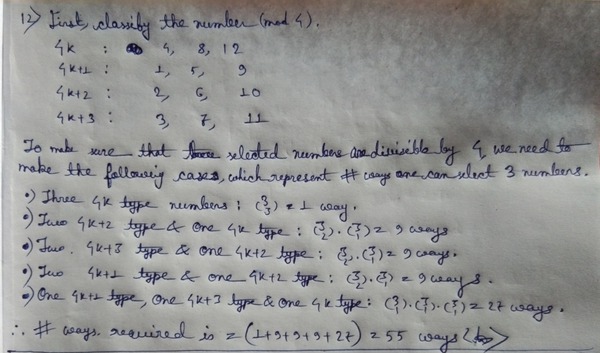 12) First, classify the number (mod 4).
4k : 4, 8, 12
4k+1 : 1, 5, 9
4k+2 : 2, 6, 10
4k+3 : 3, 7, 11
To make sure that selected numbers are divisible by 4, we need to
make the following cases, which represent # ways one can select 3 numbers.
•) Three 4k type numbers : (3 3) = 1 way.
•) Two 4k+2 type & one 4k type : (3 2).(3 1) = 9 ways
•) Two 4k+3 type & one 4k+2 type : (3 2).(3 1) = 9 ways.
•) Two 4k+1 type & one 4k+2 type : (3 2).(3 1) = 9 ways.
•) One 4k+1 type, one 4k+3 type & one 4k type : (3 1).(3 1).(3 1) = 27 ways.
∴ # ways required is = (1+9+9+9+27) = 55 ways